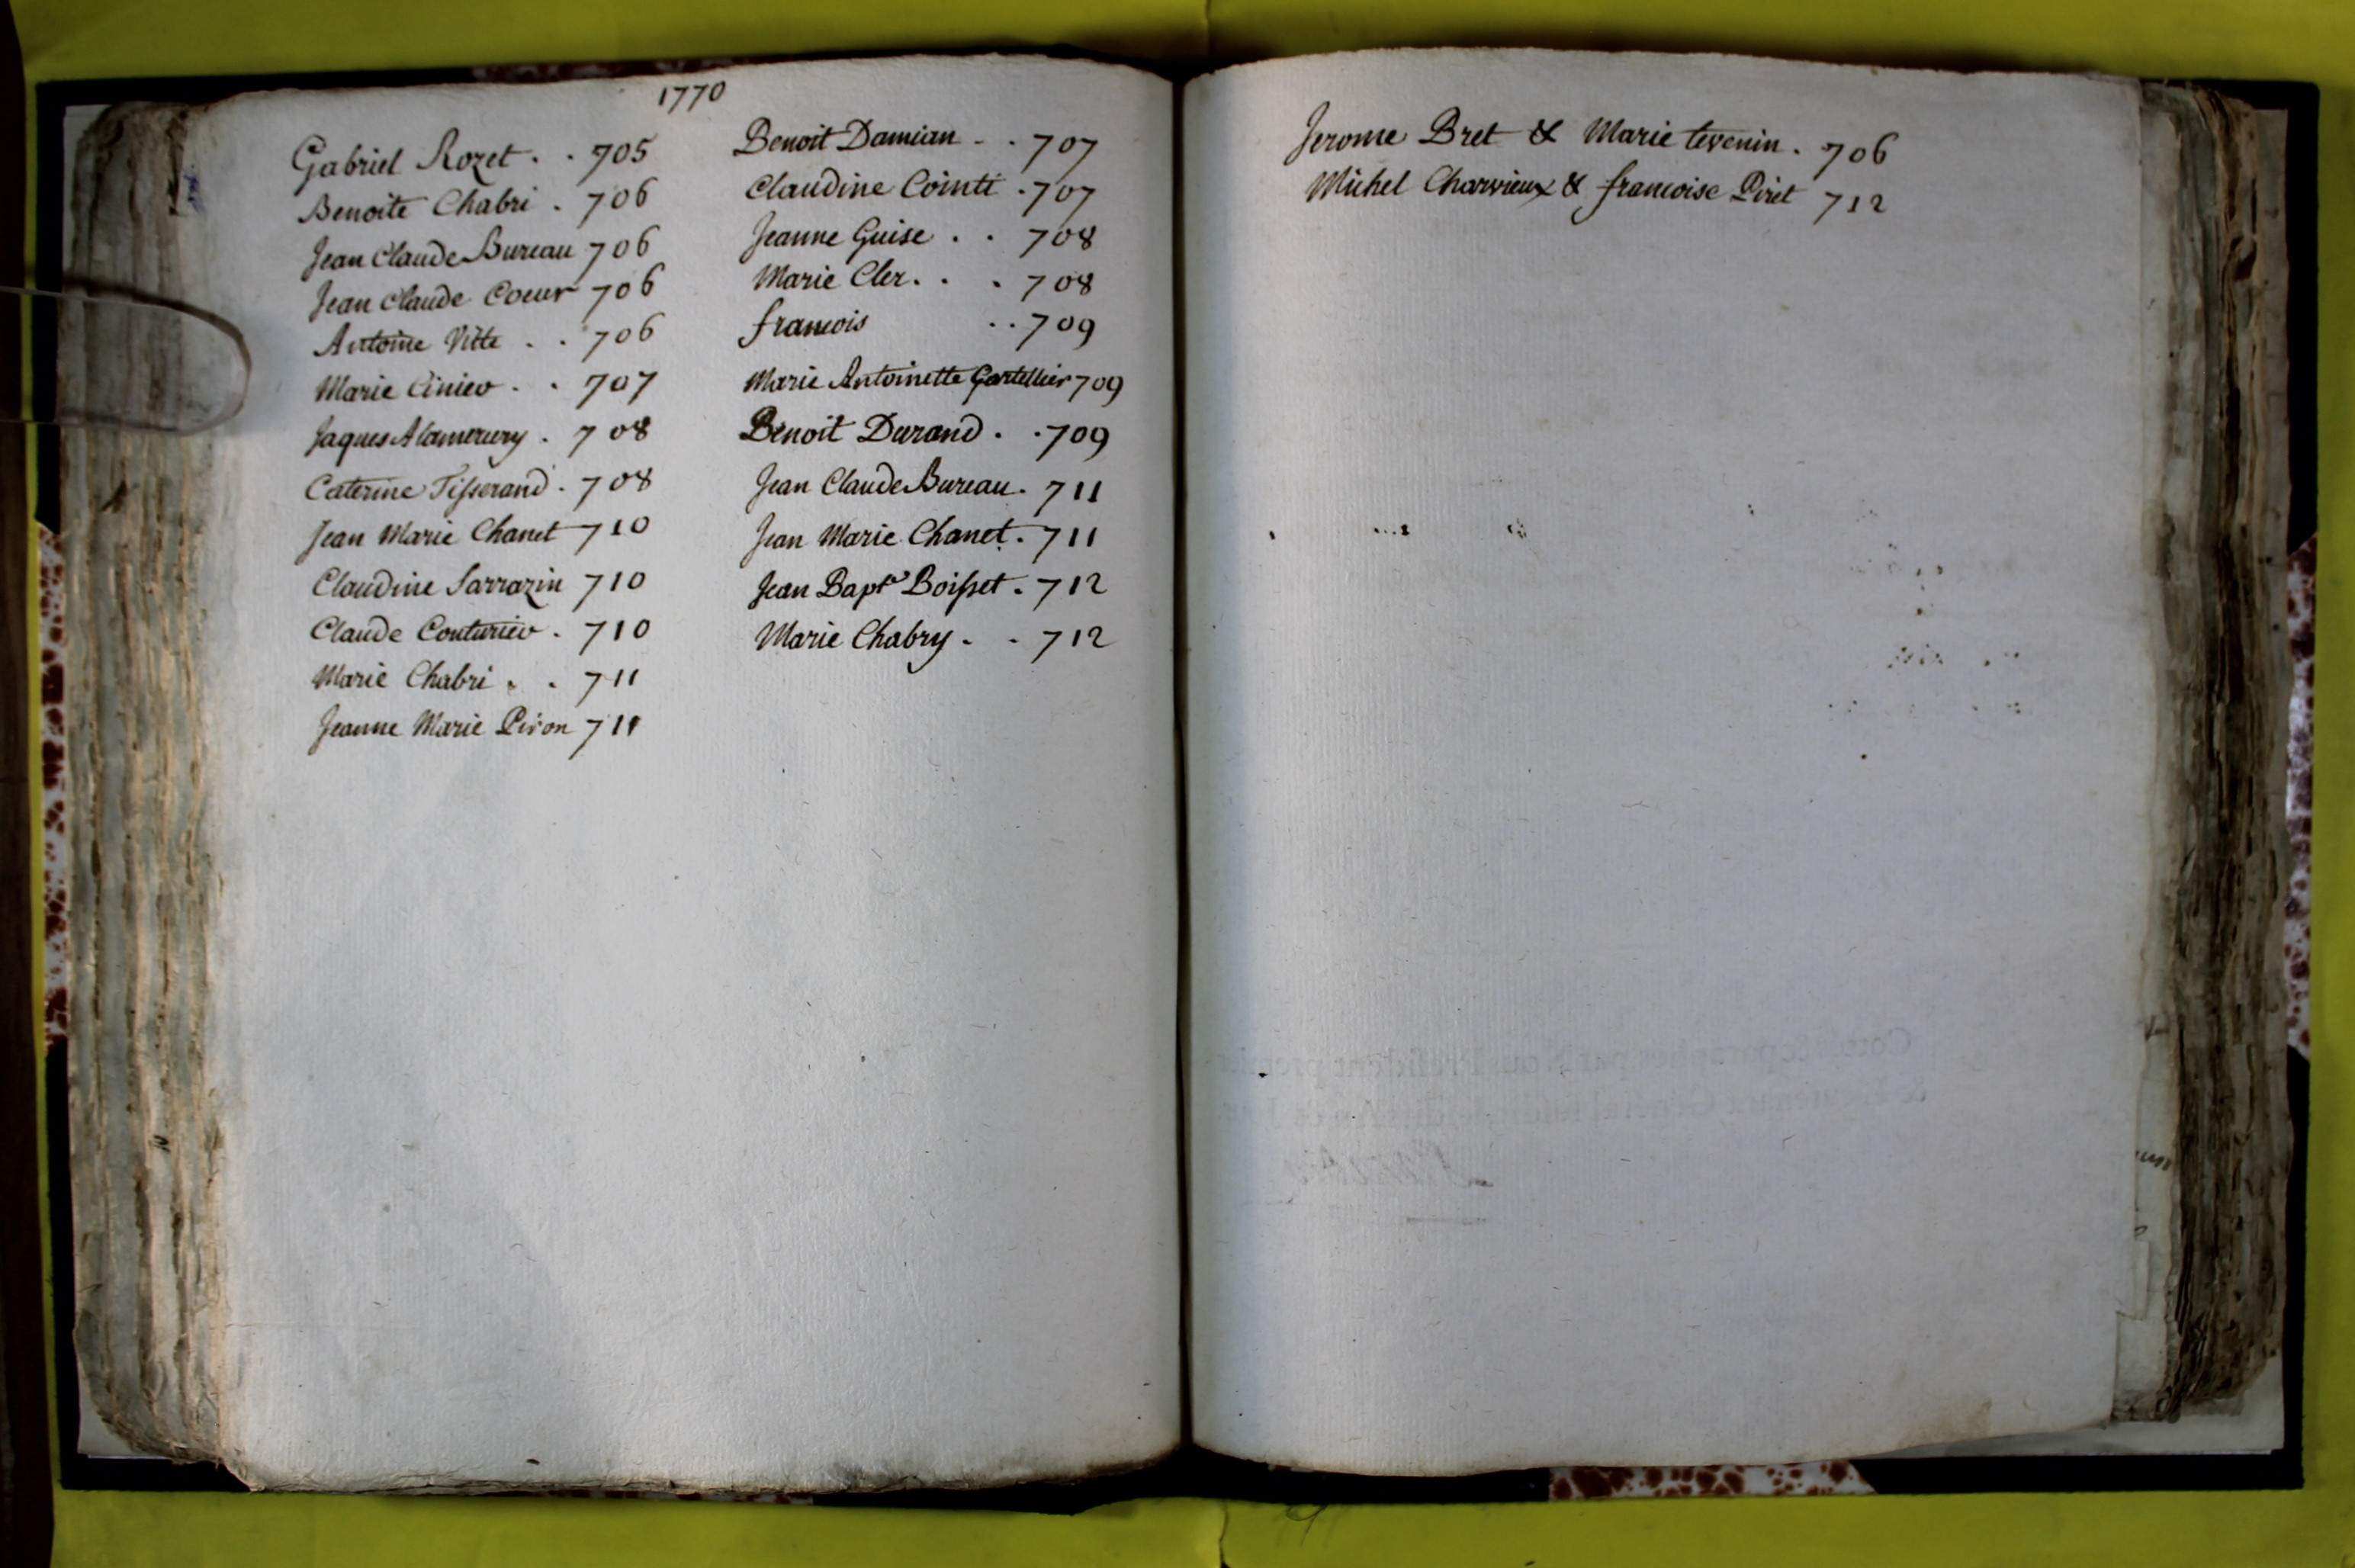 1770
Gabriel Rozet . . 705
Benoite Chabri . 706
Jean Claude Bureau 706
Jean Claude Coeur 706
Antoine Vitte . . 706
Marie Cinier . . 707
Jaques Alamercery . 708
Caterine Tisserand . 708
Jean Marie Chanet 710
Claudine Sarrazin 710
Claude Couturier . 710
Marie Chabri . . 711
Jeanne Marie Piron 711
Benoit Damian . . 707
Claudine Cointi . 707
Jeanne Guise . . 708
Marie Cler . . . 708
francois . . 709
Marie Antoinette 709
Benoit Durand . . 709
Jean Claude Bureau . 711
Jean Marie Chanet . 711
Jean Bapt^e Boisset . 712
Marie Chabry . . 712
Jerome Bret & Marie tevenin . 706
Michel Charvieux & francoise Piret 712